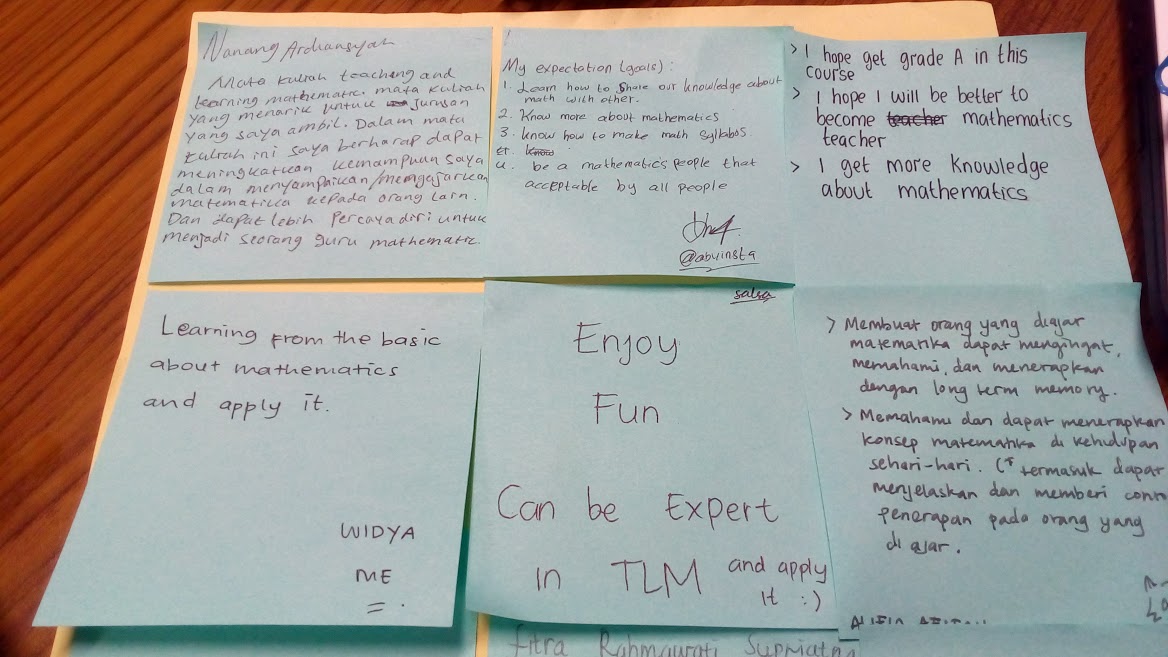 Nanang Ardiansyah
Mata kuliah teaching and
learning mathematic. mata kuliah
yang menarik untuk jurusan
yang saya ambil. Dalam mata
kuliah ini saya berharap dapat
meningkatkan kemampuan saya
dalam menyampaikan/mengajarkan
matematika kepada orang lain.
Dan dapat lebih percaya diri untuk
menjadi seorang guru mathematic.
My expectation (goals) :
1. Learn how to share our knowledge about
math with other.
2. Know more about mathematics
3. know how to make math syllabos
4. be a mathematics people that
acceptable by all people
@abyinsta
> I hope get grade A in this
course
> I hope I will be better to
become teacher mathematics
teacher
> I get more knowledge
about mathematics
Learning from the basic
about mathematics
and apply it.
WIDYA
ME
salsa
Enjoy
Fun
Can be Expert
in TLM and apply
it :)
> Membuat orang yang diajar
matematika dapat mengingat,
memahami, dan menerapkan
dengan long term memory.
> Memahami dan dapat menerapkan
konsep matematika di kehidupan
sehari-hari. (termasuk dapat
menjelaskan dan memberi conto
penerapan pada orang yang
di ajar.
Fitra Rahmawati Supriatna